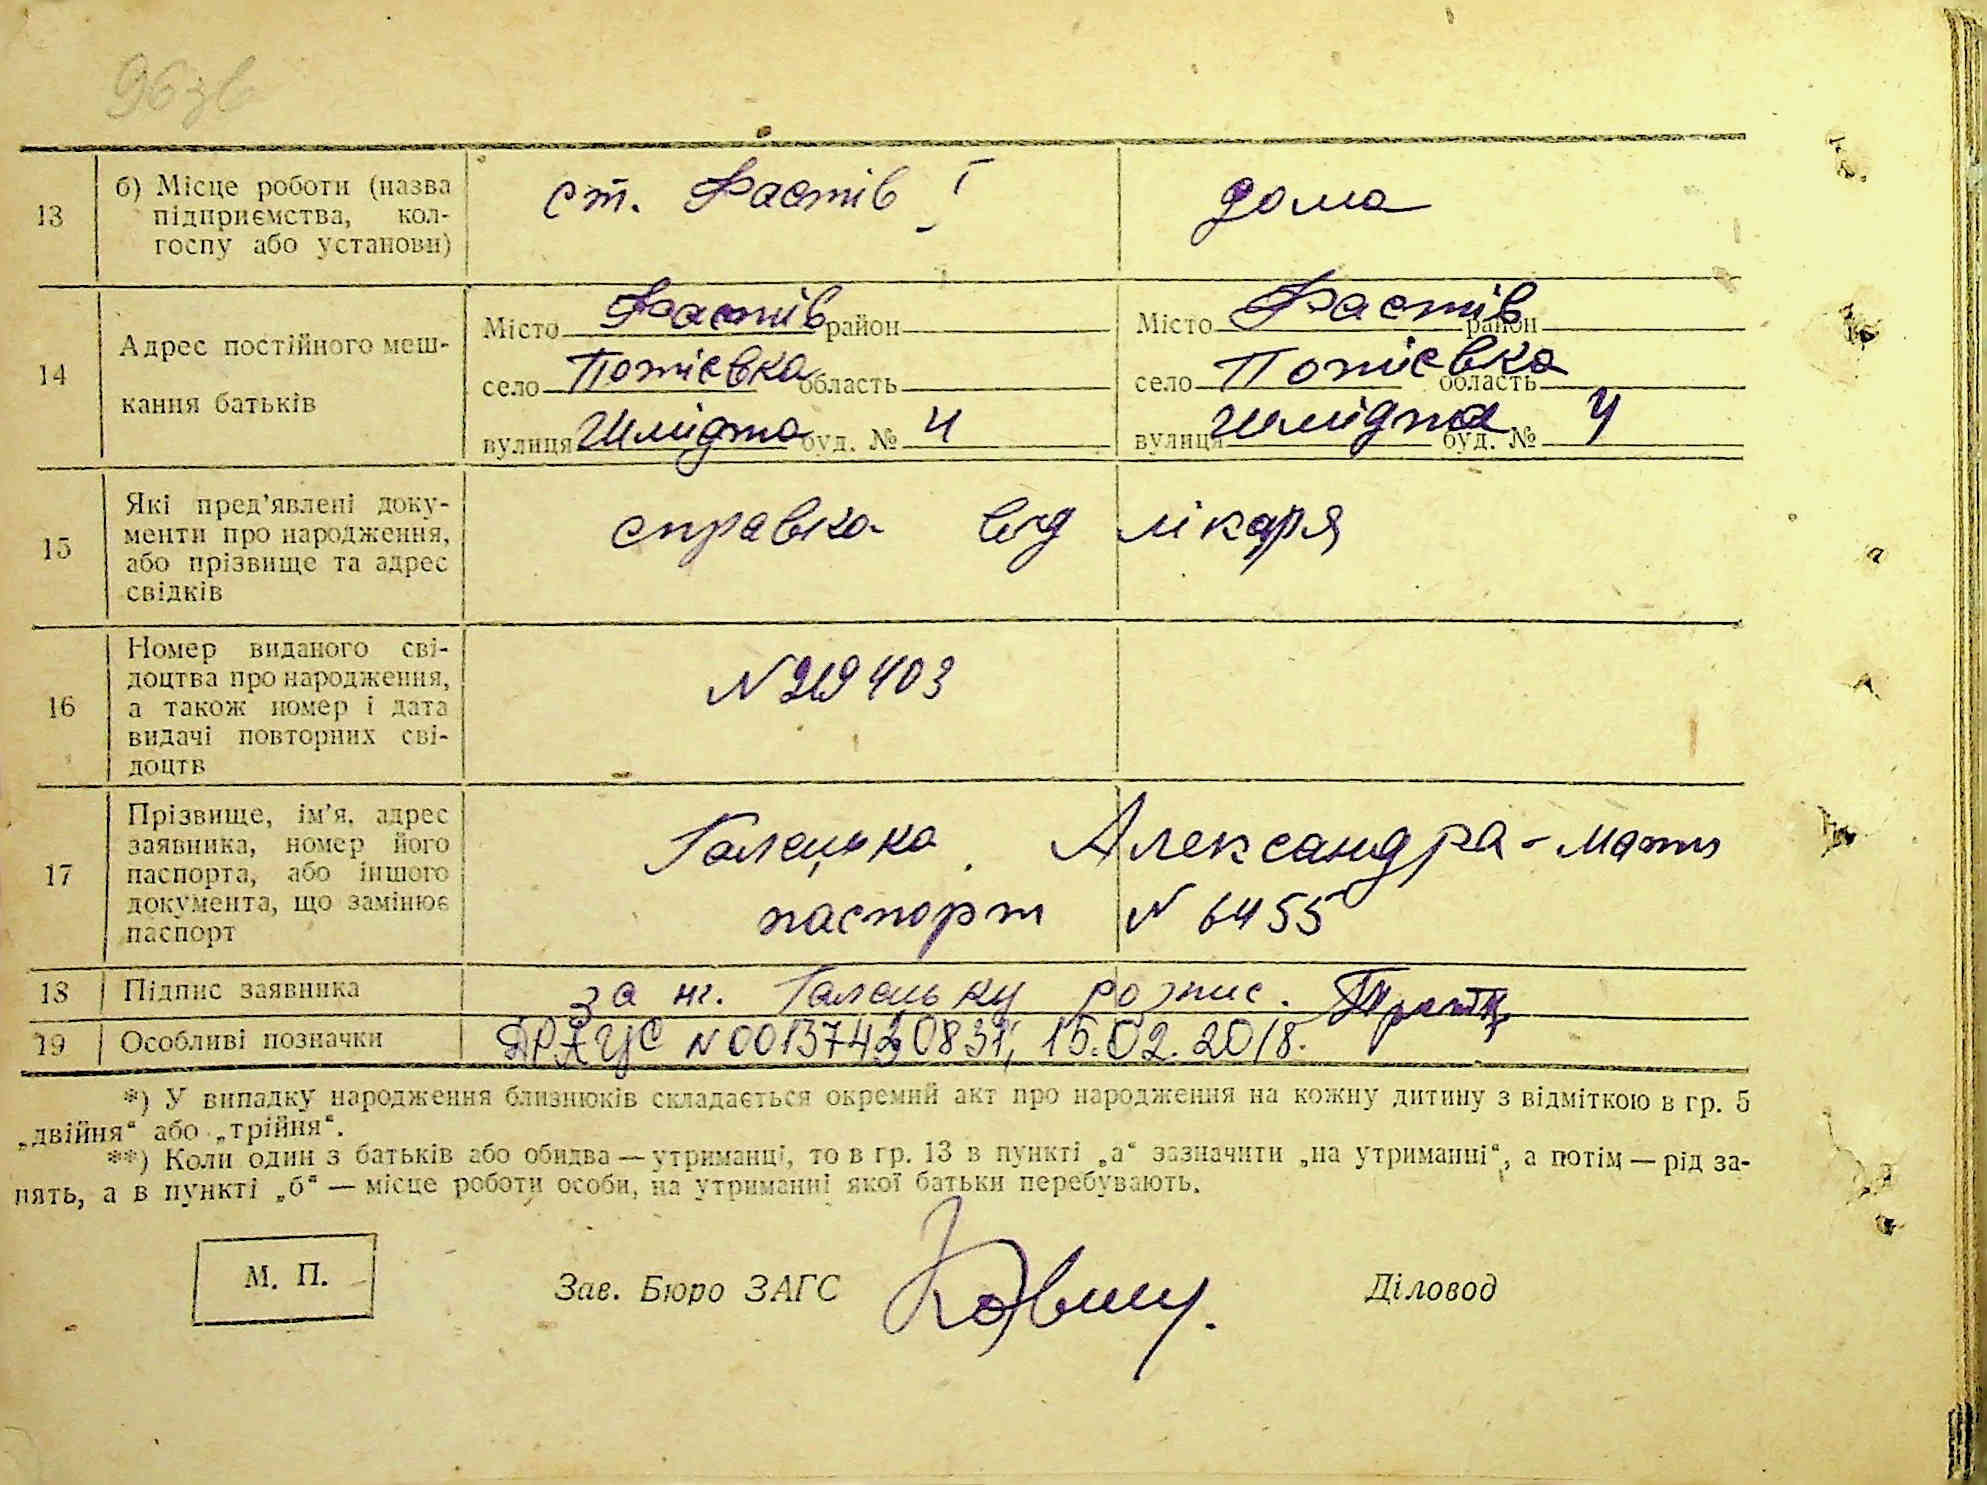 96 зв
13
б) Місце роботи (назва
підприємства, кол-
госпу або установи)
ст. Фастів I
дома
14
Адрес постійного меш-
кання батьків
Місто Фастів район
село Потіевка область
вулиця Шмідта буд. № 4
Місто Фастів район
село Потіевка область
вулиця Шмідта буд. № 4
15
Які пред'явлені доку-
менти про народження,
або прізвище та адрес
свідків
справка від лікаря
16
Номер виданого сві-
доцтва про народження,
а також номер і дата
видачі повторних сві-
доцтв
17
Прізвище, ім'я, адрес
заявника, номер його
паспорта, або іншого
документа, що замінює
паспорт
Галецька Александра - мати
паспорт N 6455
18
Підпис заявника
за нг. Галецьку розпис.
19
Особливі позначки
ДРАЦС N 00137420831, 15.02.2018.
*) У випадку народження близнюків складається окремий акт про народження на кожну дитину з відміткою в гр. 5
„двійня“ або „трійня“.
**) Коли один з батьків або обидва — утриманці, то в гр. 13 в пункті „а“ зазначити „на утриманні“, а потім — рід за-
нять, а в пункті „б“ — місце роботи особи, на утриманні якої батьки перебувають.
М. П.
Зав. Бюро ЗАГС
Діловод